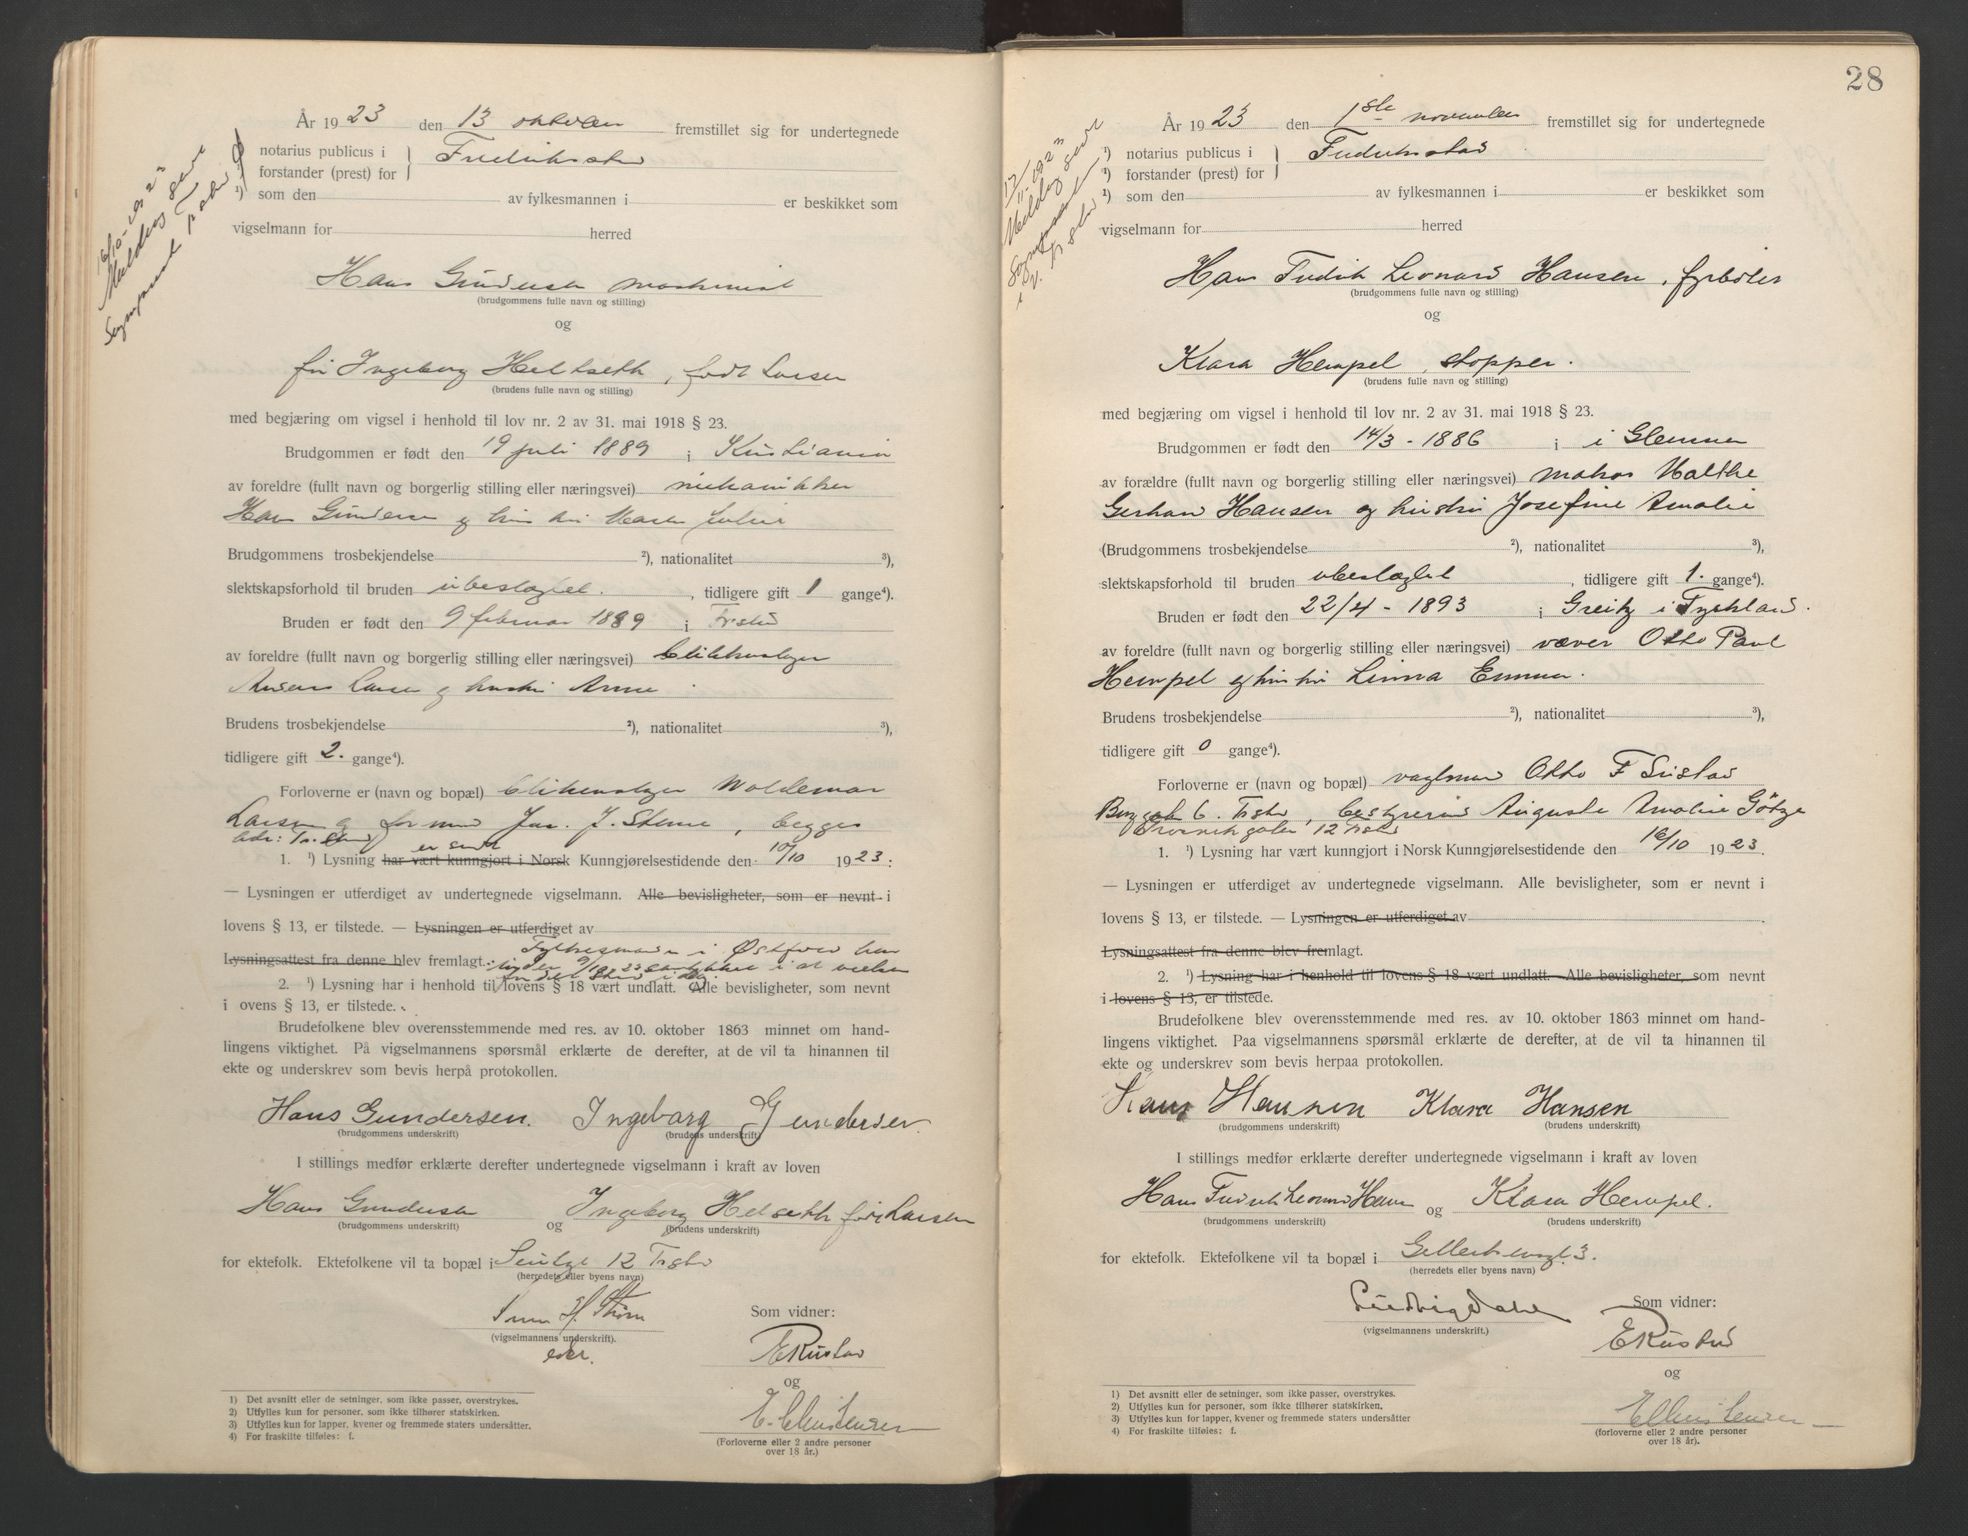 År 1923 den 13 oktober fremstillet sig for undertegnede
notarius publicus i } Fredrikstad
¹) forstander (prest) for
¹) som den av fylkesmannen i er beskikket som
vigselmann for herred
16/10-1923
Melding
Hans Gundersen maskinist
(brudgommens fulle navn og stilling)
og
fru Ingeborg Heltseth, født Larsen
(brudens fulle navn og stilling)
med begjæring om vigsel i henhold til lov nr. 2 av 31. mai 1918 § 23.
Brudgommen er født den 19 juli 1889 i Kristiania
av foreldre (fullt navn og borgerlig stilling eller næringsvei) mekanikker
Hans Gundersen og hustru
Brudgommens trosbekjendelse ²), nationalitet ³),
slektskapsforhold til bruden ubeslægtet. , tidligere gift 1 gange⁴).
Bruden er født den 9 februar 1889 i Fr.stad
av foreldre (fullt navn og borgerlig stilling eller næringsvei) blikkenslager
Larsen og hustru Anne
Brudens trosbekjendelse ²), nationalitet ³),
tidligere gift 2. gange⁴).
Forloverne er (navn og bopæl) blikenslager Woldemar
Larsen og J. , begges
adr: Fr.stad er sendt
1. ¹) Lysning har vært kunngjort i Norsk Kunngjørelsestidende den 10/10 1923:
— Lysningen er utferdiget av undertegnede vigselmann. Alle bevisligheter, som er nevnt i
lovens § 13, er tilstede. — Lysningen er utferdiget av
Fylkesmannen i Østfold har
Lysningsattest fra denne blev fremlagt.
2. ¹) Lysning har i henhold til lovens § 18 vært undlatt. Alle bevisligheter, som nevnt
i ovens § 13, er tilstede.
Brudefolkene blev overensstemmende med res. av 10. oktober 1863 minnet om hand-
lingens viktighet. På vigselmannens spørsmål erklærte de derefter, at de vil ta hinannen til
ekte og underskrev som bevis herpå protokollen.
Hans Gundersen. Ingeborg Gundersen.
(brudgommens underskrift) (brudens underskrift)
I stillings medfør erklærte derefter undertegnede vigselmann i kraft av loven
Hans Gundersen og Ingeborg Helseth født Larsen
(brudgommens underskrift) (brudens underskrift)
for ektefolk. Ektefolkene vil ta bopæl i 12 Fr.stad
(herredets eller byens navn)
(vigselmannens underskrift).
Som vidner:
E Rustad
og
E. Christensen
(Forloverne eller 2 andre personer
over 18 år.)
1) Det avsnitt eller de setninger, som ikke passer, overstrykes.
2) Utfylles kun for personer, som ikke tilhører statskirken.
3) Utfylles kun for lapper, kvener og fremmede staters undersåtter.
4) For fraskilte tilføies: f.
28
År 1923 den 1ste november fremstillet sig for undertegnede
¹) notarius publicus i } Fredrikstad
¹) forstander (prest) for
¹) som den av fylkesmannen i er beskikket som
vigselmann for herred
11-1923
Melding
Hans Fredrik Leonard Hansen, fyrbøter
(brudgommens fulle navn og stilling)
og
Klara Hempel, stopper.
(brudens fulle navn og stilling)
med begjæring om vigsel i henhold til lov nr. 2 av 31. mai 1918 § 23.
Brudgommen er født den 14/3 - 1886 i i Glemmen
av forældre (fullt navn og borgerlig stilling eller næringsvei) matros Malthe
Gerhard Hansen og hustru Josefine Amalie
(Brudgommens trosbekjendelse ²), nationalitet ³),
slektskapsforhold til bruden ubeslægtet , tidligere gift 1. gange⁴).
Bruden er født den 22/4 - 1893 i Greitz i Tyskland.
av foreldre (fullt navn og borgerlig stilling eller næringsvei) væver Otto Paul
Hempel og hustru Linna Emma.
Brudens trosbekjendelse ²), nationalitet ³),
tidligere gift 0 gange⁴).
Forloverne er (navn og bopæl) vagtmand Otto F
6. Fr.stad, bestyrerinde Auguste Amalie Götze
12 Fr.stad
1. ¹) Lysning har vært kunngjort i Norsk Kunngjørelsestidende den 16/10 1923.
— Lysningen er utferdiget av undertegnede vigselmann. Alle bevisligheter, som er nevnt i
lovens § 13, er tilstede. — Lysningen er utferdiget av
Lysningsattest fra denne blev fremlagt.
2. ¹) Lysning har i henhold til lovens § 18 vært undlatt. Alle bevisligheter, som nevnt
i lovens § 13, er tilstede.
Brudefolkene blev overensstemmende med res. av 10. oktober 1863 minnet om hand-
lingens viktighet. Paa vigselmannens spørsmål erklærte de derefter, at de vil ta hinannen til
ekte og underskrev som bevis herpaa protokollen.
Hans Hansen Klara Hansen
(brudgommens underskrift) (brudens underskrift)
I stillings medfør erklærte derefter undertegnede vigselmann i kraft av loven
Hans Fredrik Leonard Hansen og Klara Hempel.
(brudgommens underskrift) (brudens underskrift)
for ektefolk. Ektefolkene vil ta bopæl i 3.
(herredets eller byens navn)
Ludvig Dahl
(vigselmannens underskrift.)
Som vidner:
E Rustad
og
E Christensen
(forloverne eller 2 andre personer
over 18 år).
1) Det avsnitt eller de setninger, som ikke passer, overstrykes.
2) Utfylles kun for personer, som ikke tilhører statskirken.
3) Utfylles kun for lapper, kvener og fremmede staters undersåtter
4) For fraskilte tilføies: f.